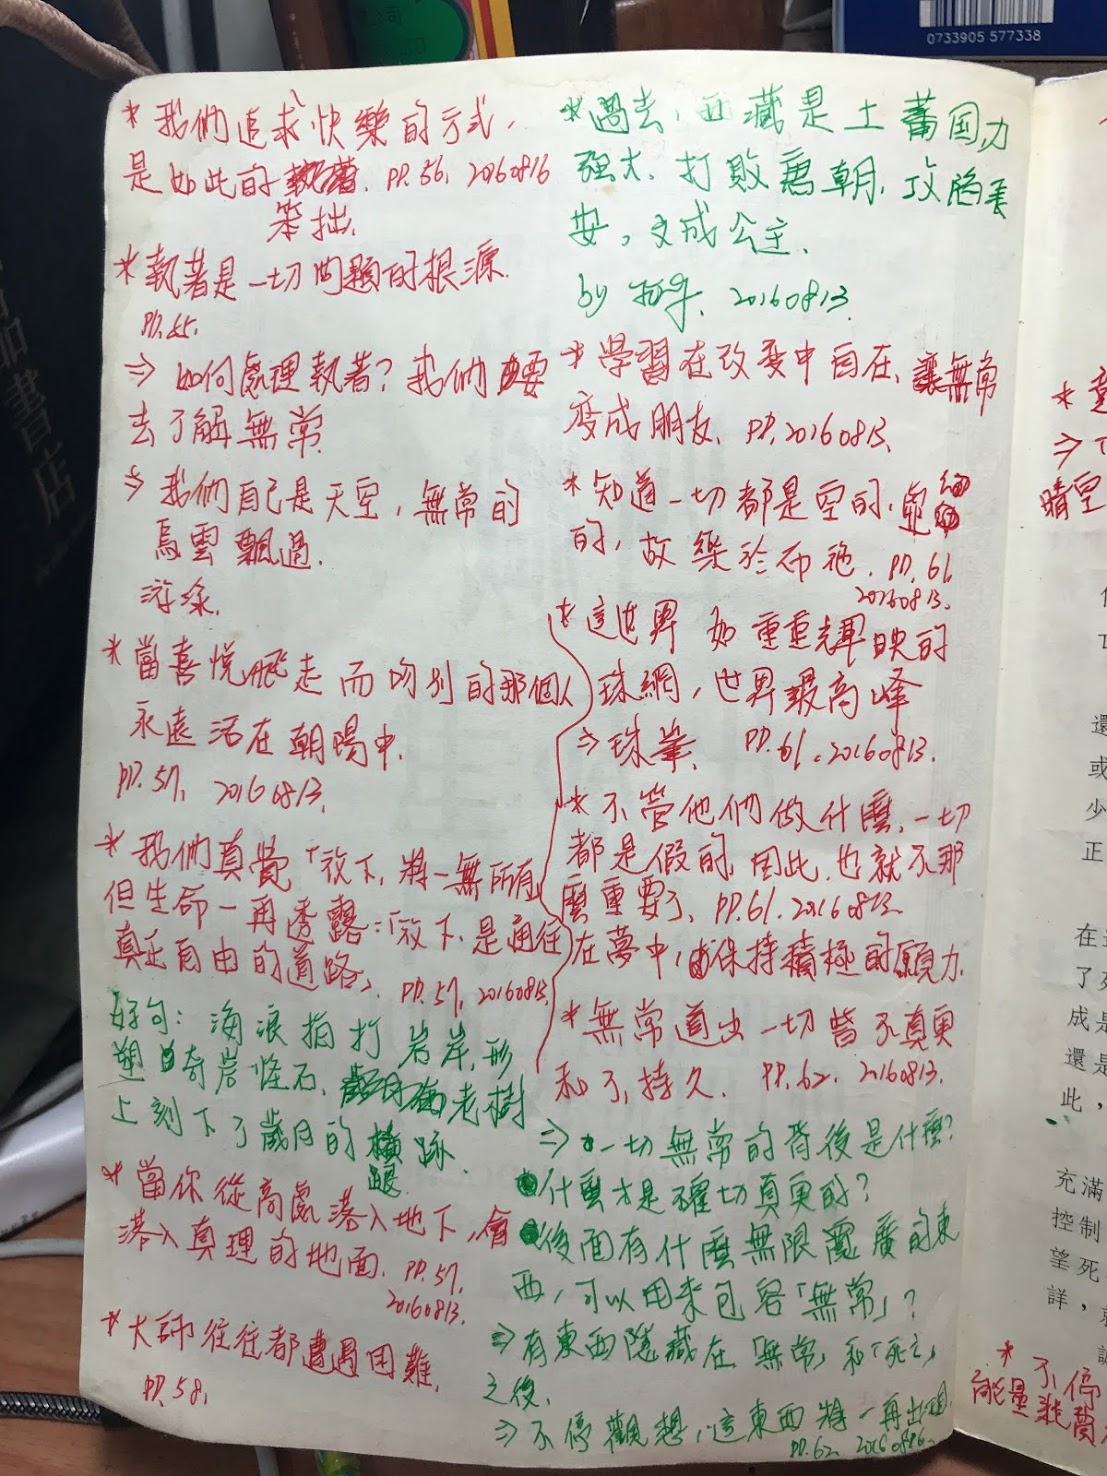 0733905 577338
公司
書店
*我們追求快樂的方式,
是如此的執著. PP.56, 20160816
笨拙.
*執著是一切問題的根源.
PP.55.
⇒如何處理執著?我們要
去了解無常
⇒我們自己是天空,無常的
烏雲飄過.
*當喜悅飛走而吻別的那個人
永遠活在朝陽中.
PP.57, 20160813.
*我們真覺「放下,將一無所有,
但生命一再透露:「放下,是通往
真正自由的道路」. PP.57, 20160813.
好句:海浪拍打岩岸,形
塑奇岩怪石,老樹
上刻下了歲月的跡.
痕
*當你從高處落入地下,會
落入真理的地面. PP.57,
20160813.
*大師往往都遭遇困難.
PP.58,
*過去,西藏是土蕃国,力
強大.打敗唐朝,攻陷長
安,文成公主.
by 20160813.
*學習在改变中自在,讓無常
变成朋友. PP.20160813.
*知道一切都是空的,虛幻
的,故樂於布施. PP.61,
20160813.
*這世界如重重輝映的
珠網,世界最高峰
⇒珠峯. PP.61.20160813.
*不管他們做什麼,一切
都是假的,因此,也就不那
麼重要了. PP.61.20160813.
在夢中,保持積極的願力.
*無常道出一切皆不真實
和不持久. PP.62. 20160813.
⇒一切無常的背後是什麼?
什麼才是確切真实的?
後面有什麼無限寬廣的東
西,可以用來包容「無常」?
⇒有東西隱藏在「無常」和「死亡」
之後.
⇒不停觀想,這東西將一再出現.
PP.62. 20160816.
*
⇒
晴空
還
或
少
正
在
了死
成是
還是
此,
充滿
控制
望死
詳,
*不停
能量耗費